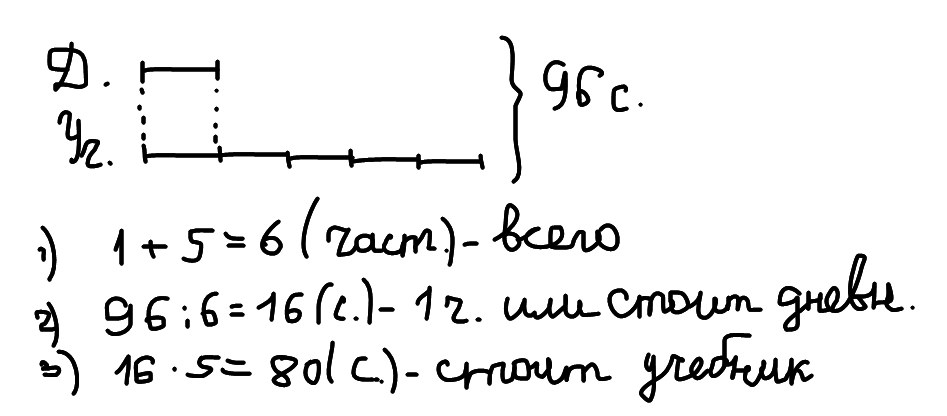 Д.
96 с.
Уч.
1) 1 + 5 = 6 (част.) - всего
2) 96 : 6 = 16 (с.) - 1 ч. или стоит дневн.
3) 16 · 5 = 80 (с.) - стоит учебник